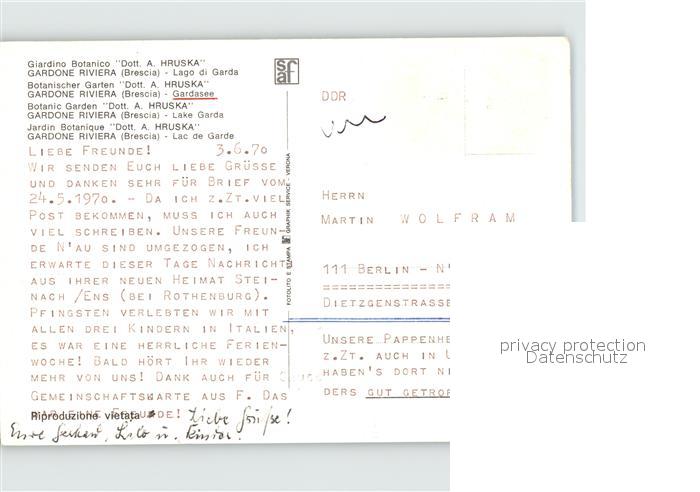 Giardino Botanico "Dott. A. HRUSKA"
GARDONE RIVIERA (Brescia) - Lago di Garda
Botanischer Garten "Dott. A. HRUSKA"
GARDONE RIVIERA (Brescia) - Gardasee
Botanic Garden "Dott. A. HRUSKA"
GARDONE RIVIERA (Brescia) - Lake Garda
Jardin Botanique "Dott. A. HRUSKA"
GARDONE RIVIERA (Brescia) - Lac de Garde
LIEBE FREUNDE! 3.6.70
WIR SENDEN EUCH LIEBE GRÜSSE
UND DANKEN SEHR FÜR BRIEF VOM
24.5.1970. - DA ICH Z.ZT. VIEL
POST BEKOMMEN, MUSS ICH AUCH
VIEL SCHREIBEN. UNSERE FREUN-
DE N'AU SIND UMGEZOGEN, ICH
ERWARTE DIESER TAGE NACHRICHT
AUS IHRER NEUEN HEIMAT STEI-
NACH /ENS (BEI ROTHENBURG).
PFINGSTEN VERLEBTEN WIR MIT
ALLEN DREI KINDERN IN ITALIEN,
ES WAR EINE HERRLICHE FERIEN-
WOCHE! BALD HÖRT IHR WIEDER
MEHR VON UNS! DANK AUCH FÜR
GEMEINSCHAFTSKARTE AUS F. DAS
WAR EINE FREUDE!
Riproduzione vietata
Liebe Grüße!
Eure Gerhard, Lilo u. Kinder.
saf
FOTOLITO E STAMPA saf GRAPHIK SERVICE - VERONA
DDR
HERRN
MARTIN WOLFRAM
111 BERLIN - N'
DIETZGENSTRASSE
UNSERE PAPPENHE
Z.ZT. AUCH IN U
HABEN'S DORT NI
DERS GUT GETROF
privacy protection
Datenschutz